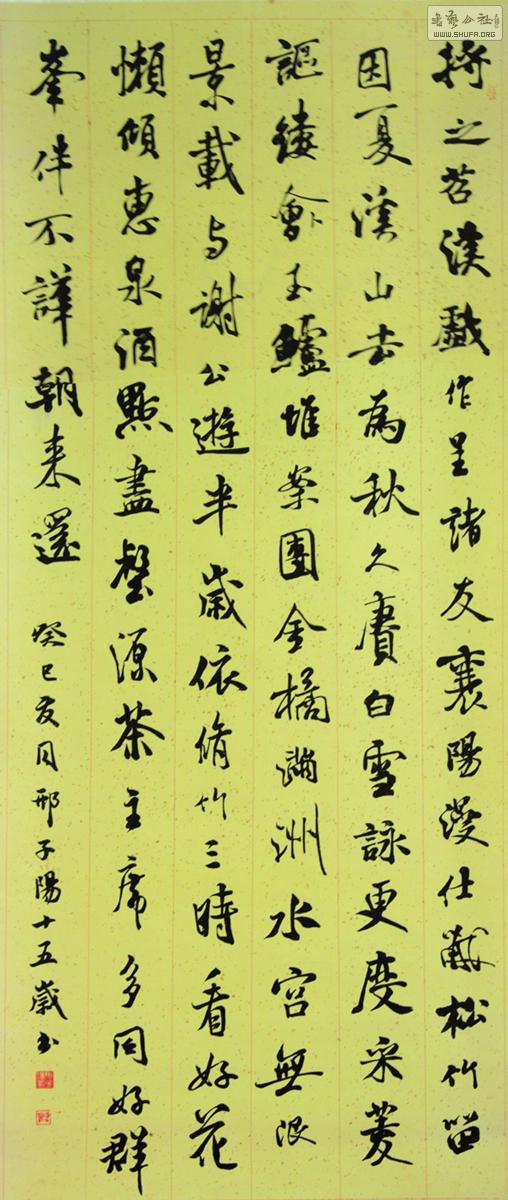 書藝公社
WWW.SHUFA.ORG
將之苕溪戲作呈諸友襄陽漫仕黻松竹留
因夏溪山去為秋久賡白雪詠更度采菱
謳縷會玉鱸堆案團金橘滿洲水宮無限
景載與謝公遊半歲依脩竹三時看好花
懶傾惠泉酒點盡壑源茶主席多同好群
峯伴不譁朝来還
癸巳夏月邢子陽十五歲書